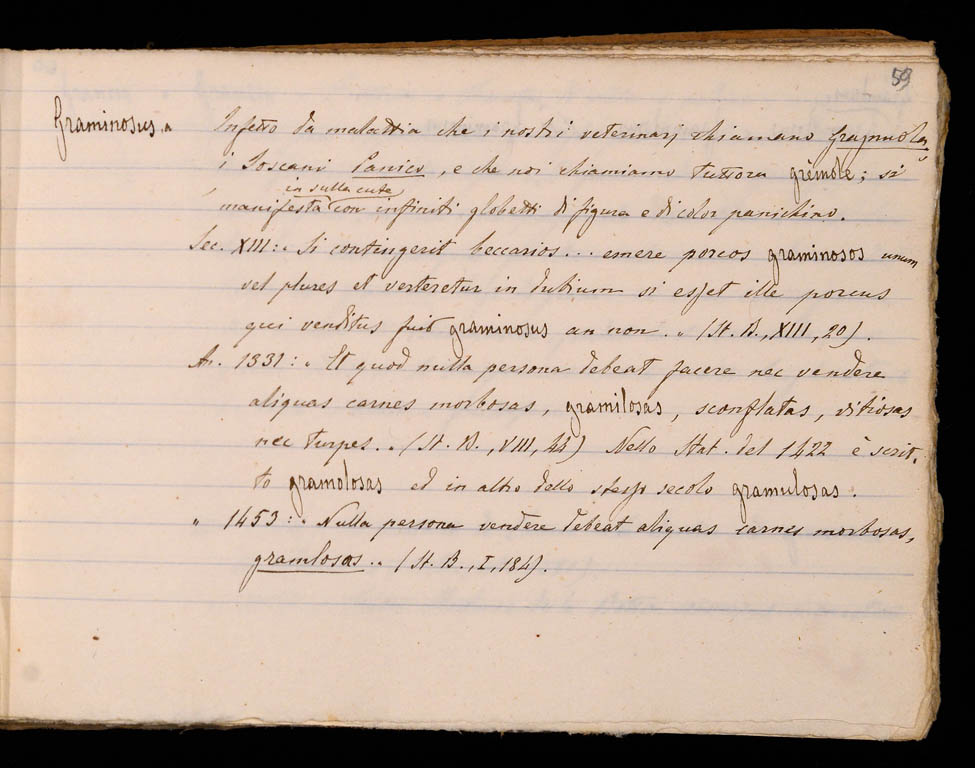 59
Graminosus, a Infetto da malattia che i nostri veterinarj chiamano Gragnuola,
i Toscani Panico, e che noi chiamiamo tuttora grèmole; si
in sulla cute
manifesta con infiniti globetti di figura e di color panichino.
Sec. XIII: „ Si contingerit beccarios... emere porcos graminosos unum
vel plures et verteretur in dubium si esset ille porcus
qui venditus fuit graminosus an non. „ (St. B., XIII, 20).
An. 1331: „ Et quod nulla persona debeat facere nec vendere
aliquas carnes morbosas, gramilosas, sconflatas, vitiosas
nec turpes. „ (St. B., VIII, 44) Nello Stat. del 1422 è scrit-
to gramolosas ed in altro dello stesso secolo gramulosas.
„ 1453: „ Nulla persona vendere debeat aliquas carnes morbosas,
gramlosas. „ (St. B., I, 184).